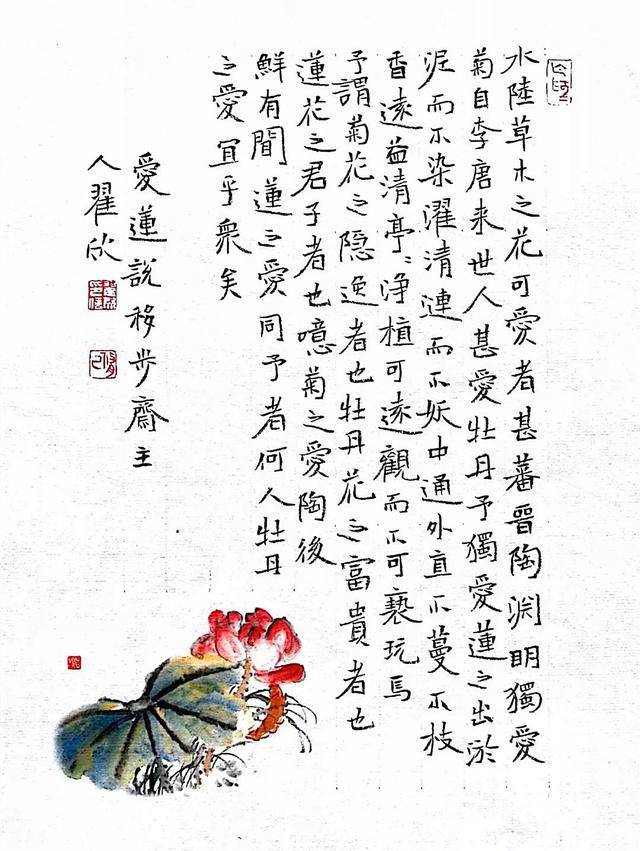 水陸草木之花可愛者甚蕃晉陶淵明獨愛
菊自李唐来世人甚愛牡丹予獨愛蓮之出淤
泥而不染濯清漣而不妖中通外直不蔓不枝
香遠益清亭〻淨植可遠觀而不可褻玩焉
予謂菊花之隐逸者也牡丹花之富貴者也
蓮花之君子者也噫菊之愛陶後
鮮有聞蓮之愛同予者何人牡丹
之愛宜乎衆矣
愛蓮說移步齋主
人翟欣